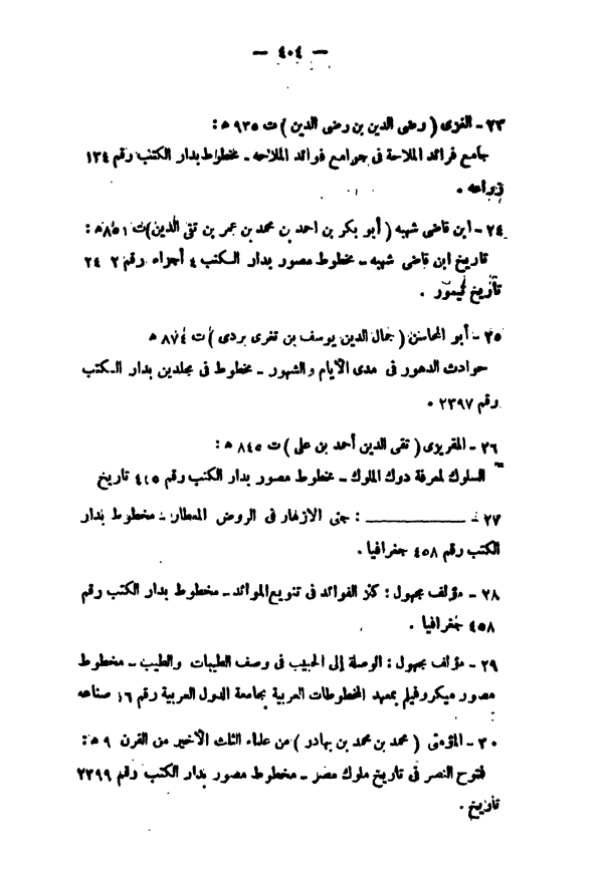 — ٤٠٤ —
٢٣ - الغزى ( رضى الدين بن رضى الدين ) ت ٩٣٥ ھ :
جامع فرائد الملاحة فى جوامع فوائد الملاحه - مخطوط بدار الكتب رقم ١٣٤
زراعه .
٢٤ - ابن قاضى شهبه ( أبو بكر بن احمد بن محمد بن عمر بن تقى الدين ) ت ٨٥١ ھ :
تاريخ ابن قاضى شهبه - مخطوط مصور بدار الكتب ٤ أجزاء رقم ٢ ٢٤
تأريخ تيمور .
٢٥ - أبو المحاسن ( جمال الدين يوسف بن تغرى بردى ) ت ٨٧٤ ھ
حوادث الدهور فى مدى الأيام والشهور - مخطوط فى مجلدين بدار الكتب
رقم ٢٣٩٧ .
٢٦ - المقريزى ( تقى الدين أحمد بن على ) ت ٨٤٥ ھ :
السلوك لمعرفة دوك الملوك - مخطوط مصور بدار الكتب رقم ٤١٥ تاريخ
٢٧ - ـــــــــــ : جنى الازهار فى الروض المعطار - مخطوط بدار
الكتب رقم ٤٥٨ جغرافيا .
٢٨ - مؤلف مجهول : كنز الفوائد فى تنويع الموائد - مخطوط بدار الكتب رقم
٤٥٨ جغرافيا .
٢٩ - مؤلف مجهول : الوصلة إلى الحبيب فى وصف الطيبات والطيب - مخطوط
مصور ميكروفيلم بمعهد المخطوطات العربية بجامعة الدول العربية رقم ١٦ صناعه
٣٠ - المؤمنى ( محمد بن محمد بن بهادر ) من علماء الثلث الأخير من القرن ٩ ھ :
فتوح النصر فى تاريخ ملوك مصر - مخطوط مصور بدار الكتب رقم ٢٣٩٩
تأريخ .